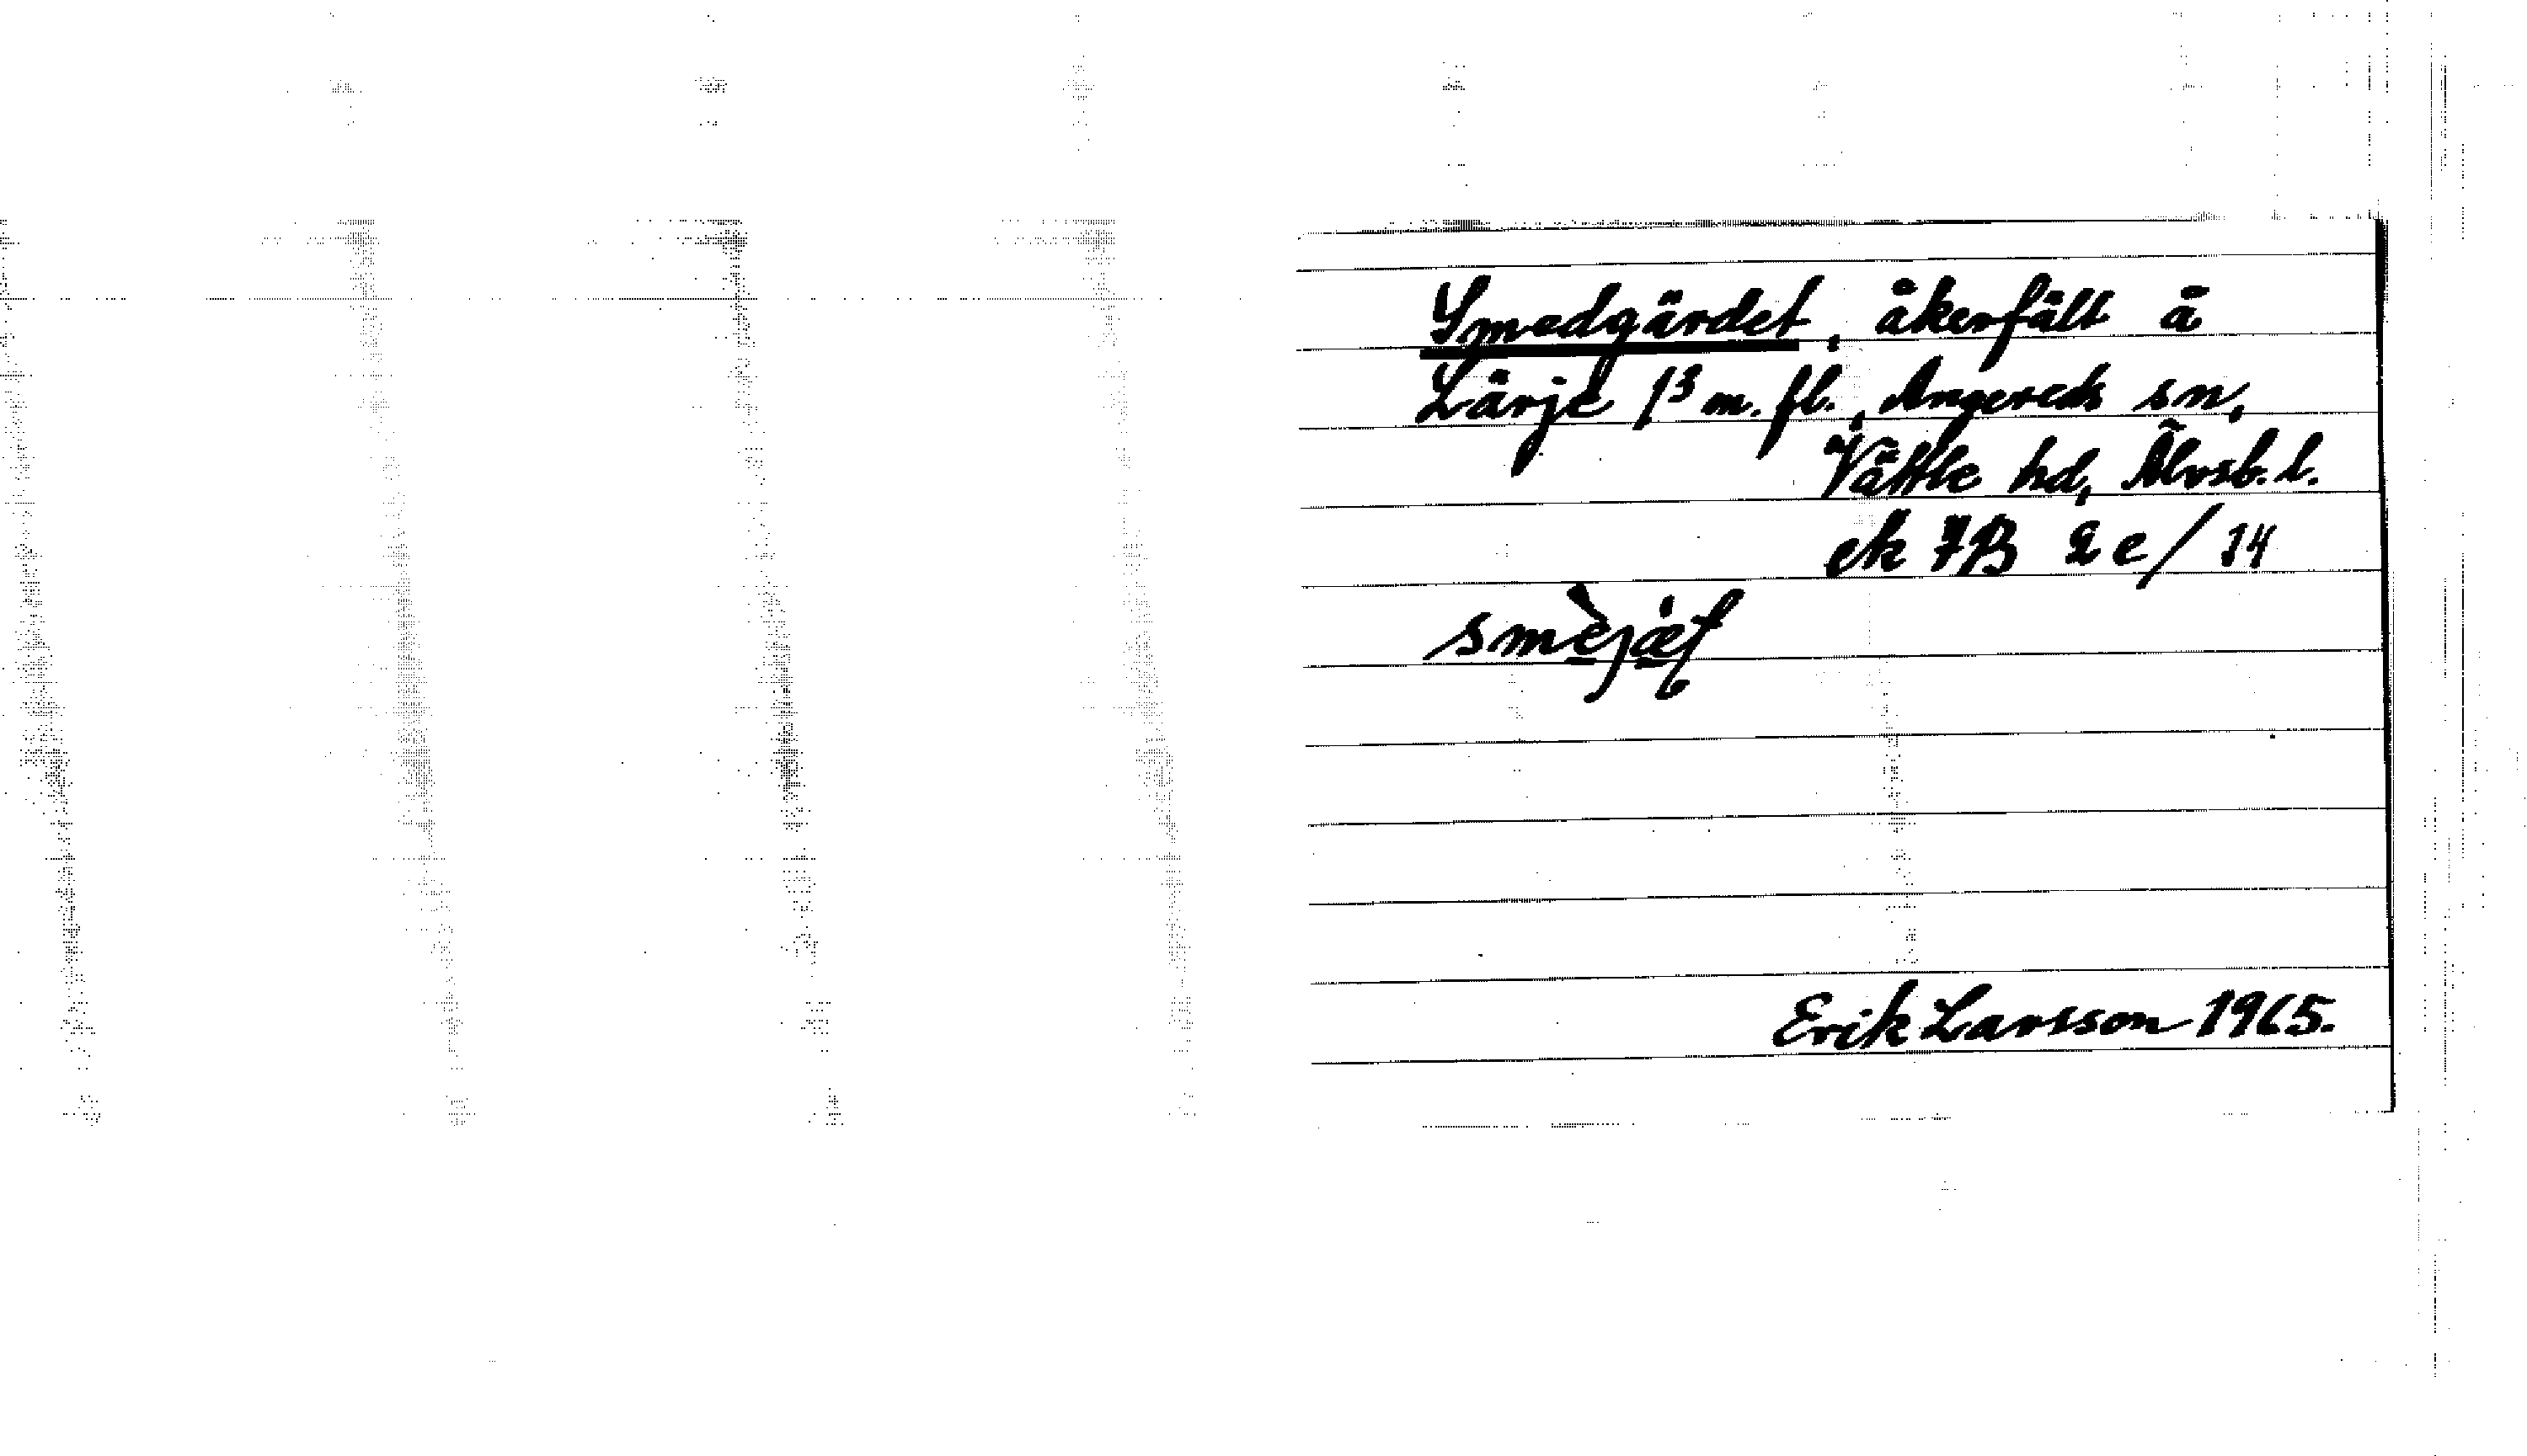 Smedgärdet, åkerfält å
Lärje 1³ m. fl., Angereds sn,
Vättle hd, Älvsb. l.
ek 7B 2 e/14
Erik Larsson 1965.